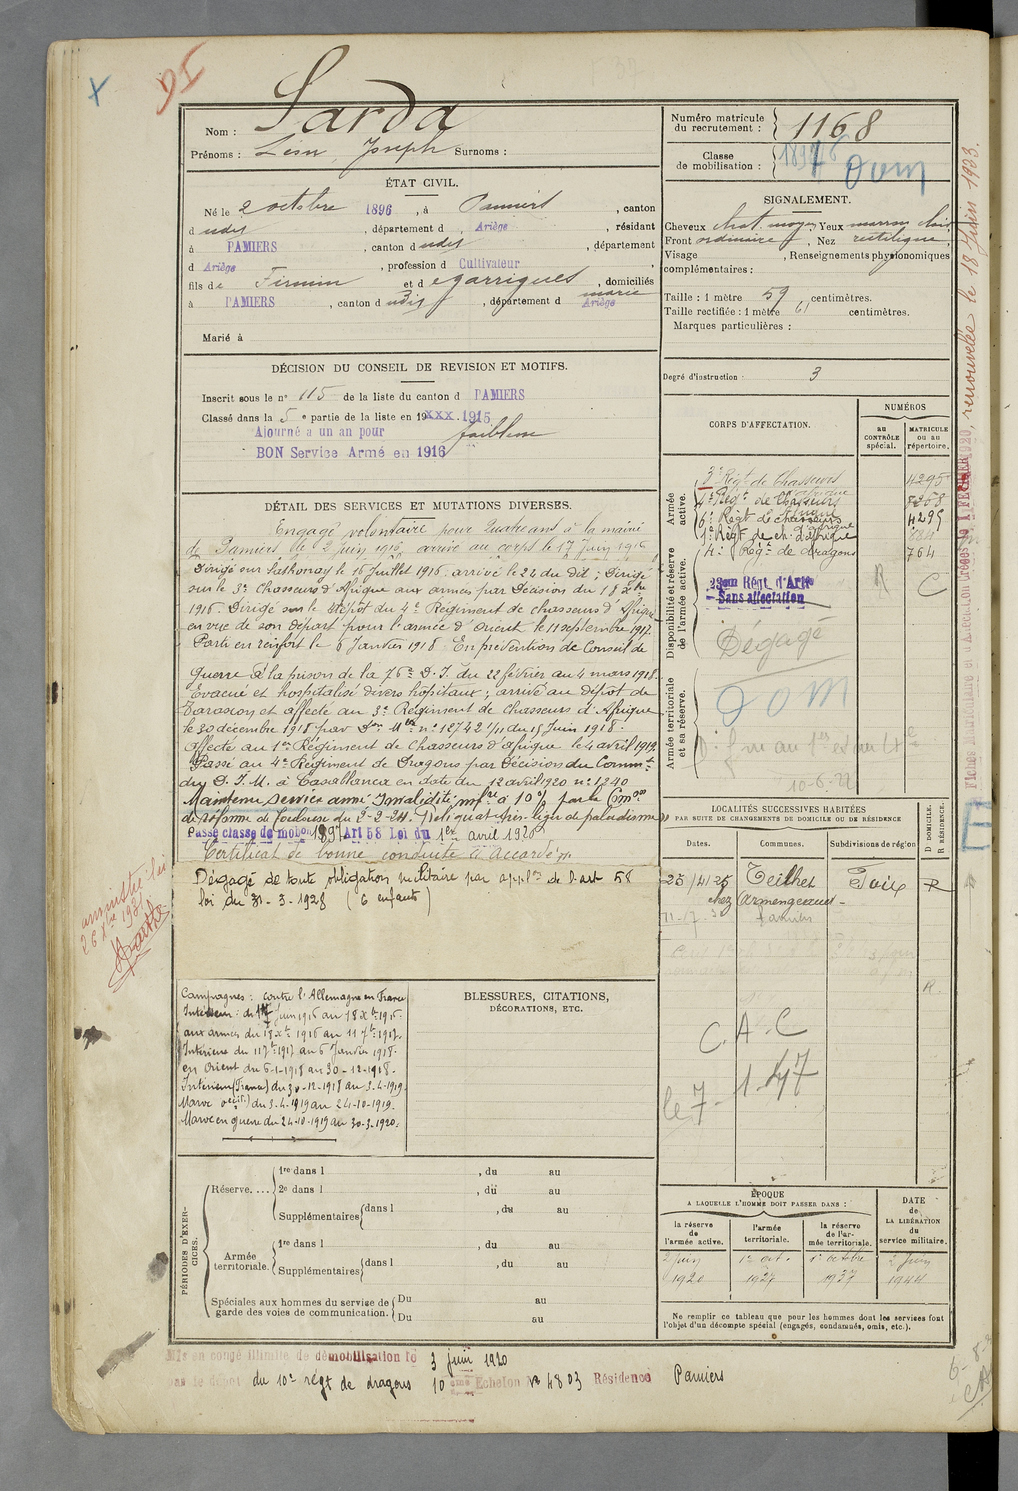 Nom : Sarda
Prénoms : Léon, Joseph Surnoms :
ÉTAT CIVIL.
Né le 2 octobre 1896, à Pamiers, canton
d udit, département d Ariège, résidant
à PAMIERS, canton d udit, département
d Ariège, profession d Cultivateur
fils de Firmin et de garrigues marie, domiciliés
à PAMIERS, canton d udit, département d Ariège
Marié à
DÉCISION DU CONSEIL DE REVISION ET MOTIFS.
Inscrit sous le n° 115 de la liste du canton d PAMIERS
Classé dans la 5e partie de la liste en 19XXX 1915
Ajourné a un an pour faiblesse
BON Service Armé en 1916
DÉTAIL DES SERVICES ET MUTATIONS DIVERSES.
Engagé volontaire pour quatre ans à la mairie
de Pamiers, le 2 juin 1916, arrivé au corps le 17 juin 1916
Dirigé sur Sathonay le 16 Juillet 1916. arrivé le 22 du dit ; Dirigé
sur le 3e Chasseurs d'Afrique aux armées par Décision du 18 Xbre
1916. Dirigé sur le dépôt du 4e Régiment de Chasseurs d'Afrique
en vue de son départ pour l'armée d'Orient le 11 septembre 1917.
Parti en renfort le 6 Janvier 1918. En prévention de Conseil de
Guerre à la prison de la 76e D.I. du 22 février au 4 mars 1918.
Evacué et hospitalisé divers hôpitaux ; arrivé au dépôt de
Tarascon et affecté au 3e Régiment de Chasseurs d'Afrique
le 30 décembre 1918 par Don Mlle n° 18742 1/11 du 15 Juin 1918.
Affecté au 1er Régiment de Chasseurs d'Afrique le 4 avril 1919.
Passé au 4e Régiment de Dragons par Décision du Commt
du D.I.M. à Casablanca en date du 12 avril 1920 n° 1240
Maintenu service armé Invalidité infre à 10 % par la Comon
de réforme de Toulouse du 2-2-24. Reliquat très léger de paludisme
Passé classe de mobon 1894 Art 58 Loi du 1er avril 1923
Certificat de bonne conduite "Accordé".
Dégagé de toute obligation militaire par applon de l'art 58
loi du 31-3-1928 (6 enfants)
amnistié loi
26 Xbre 1931
Campagnes : contre l'Allemagne en France
Intérieur : du 17 Juin 1916 au 18 Xbre 1916.
aux armées du 18 Xbre 1916 au 11 7bre 1917.
Intérieur du 11 7bre 1917 au 6 Janvier 1918.
en Orient du 6-1-1918 au 30-12-1918.
Intérieur (France) du 30-12-1918 au 3-4-1919.
Maroc occid.) du 3-4-1919 au 24-10-1919.
Maroc en guerre du 24-10-1919 au 30-3-1920.
BLESSURES, CITATIONS,
DÉCORATIONS, ETC.
PÉRIODES D'EXERCICES.
Réserve....
1re dans l , du au
2e dans l , du au
Supplémentaires dans l , du au
Armée territoriale.
1re dans l , du au
Supplémentaires dans l , du au
Spéciales aux hommes du service de garde des voies de communication.
Du au
Du au
Numéro matricule du recrutement : 1168
Classe de mobilisation :
Dom
SIGNALEMENT.
Cheveux chat. moyen Yeux marron clair
Front ordinaire, Nez rectiligne
Visage , Renseignements physionomiques
complémentaires :
Taille : 1 mètre 59 centimètres.
Taille rectifiée : 1 mètre 61 centimètres.
Marques particulières :
Degré d'instruction : 3
CORPS D'AFFECTATION.
NUMÉROS
au CONTRÔLE spécial.
MATRICULE ou au répertoire.
Armée active.
3e Régt de Chasseurs 4295
4e Régt de Chasseurs d'Afrique
6e Régt de Chasseurs d'Afrique 4295
1er Régt de ch. d'Afrique
4e Régt de dragons 764
Disponibilité et réserve de l'armée active.
Régt d'Artie
Sans affectation
R C
Dégagé
Armée territoriale et sa réserve.
DOM
10-6-22
LOCALITÉS SUCCESSIVES HABITÉES
PAR SUITE DE CHANGEMENTS DE DOMICILE OU DE RÉSIDENCE
Dates. Communes. Subdivisions de région D DOMICILE. R RÉSIDENCE.
25/4/25 Teilhet Foix R
chez Armengeaud
Pamiers
R.
C.A.C
le 7-1-47
ÉPOQUE
A LAQUELLE L'HOMME DOIT PASSER DANS :
la réserve de l'armée active.
l'armée territoriale.
la réserve de l'armée territoriale.
DATE de LA LIBÉRATION du service militaire.
2 Juin 1920
1er oct. 1927
1er octobre 1937
2 Juin 1944
Ne remplir ce tableau que pour les hommes dont les services font
l'objet d'un décompte spécial (engagés, condamnés, omis, etc.).
Mis en congé illimité de démobilisation le 3 juin 1920
par le dépôt du 10e régt de dragons 10 ème Echelon N° 4803 Résidence Pamiers
renouvelée le 18 Juin 1933.